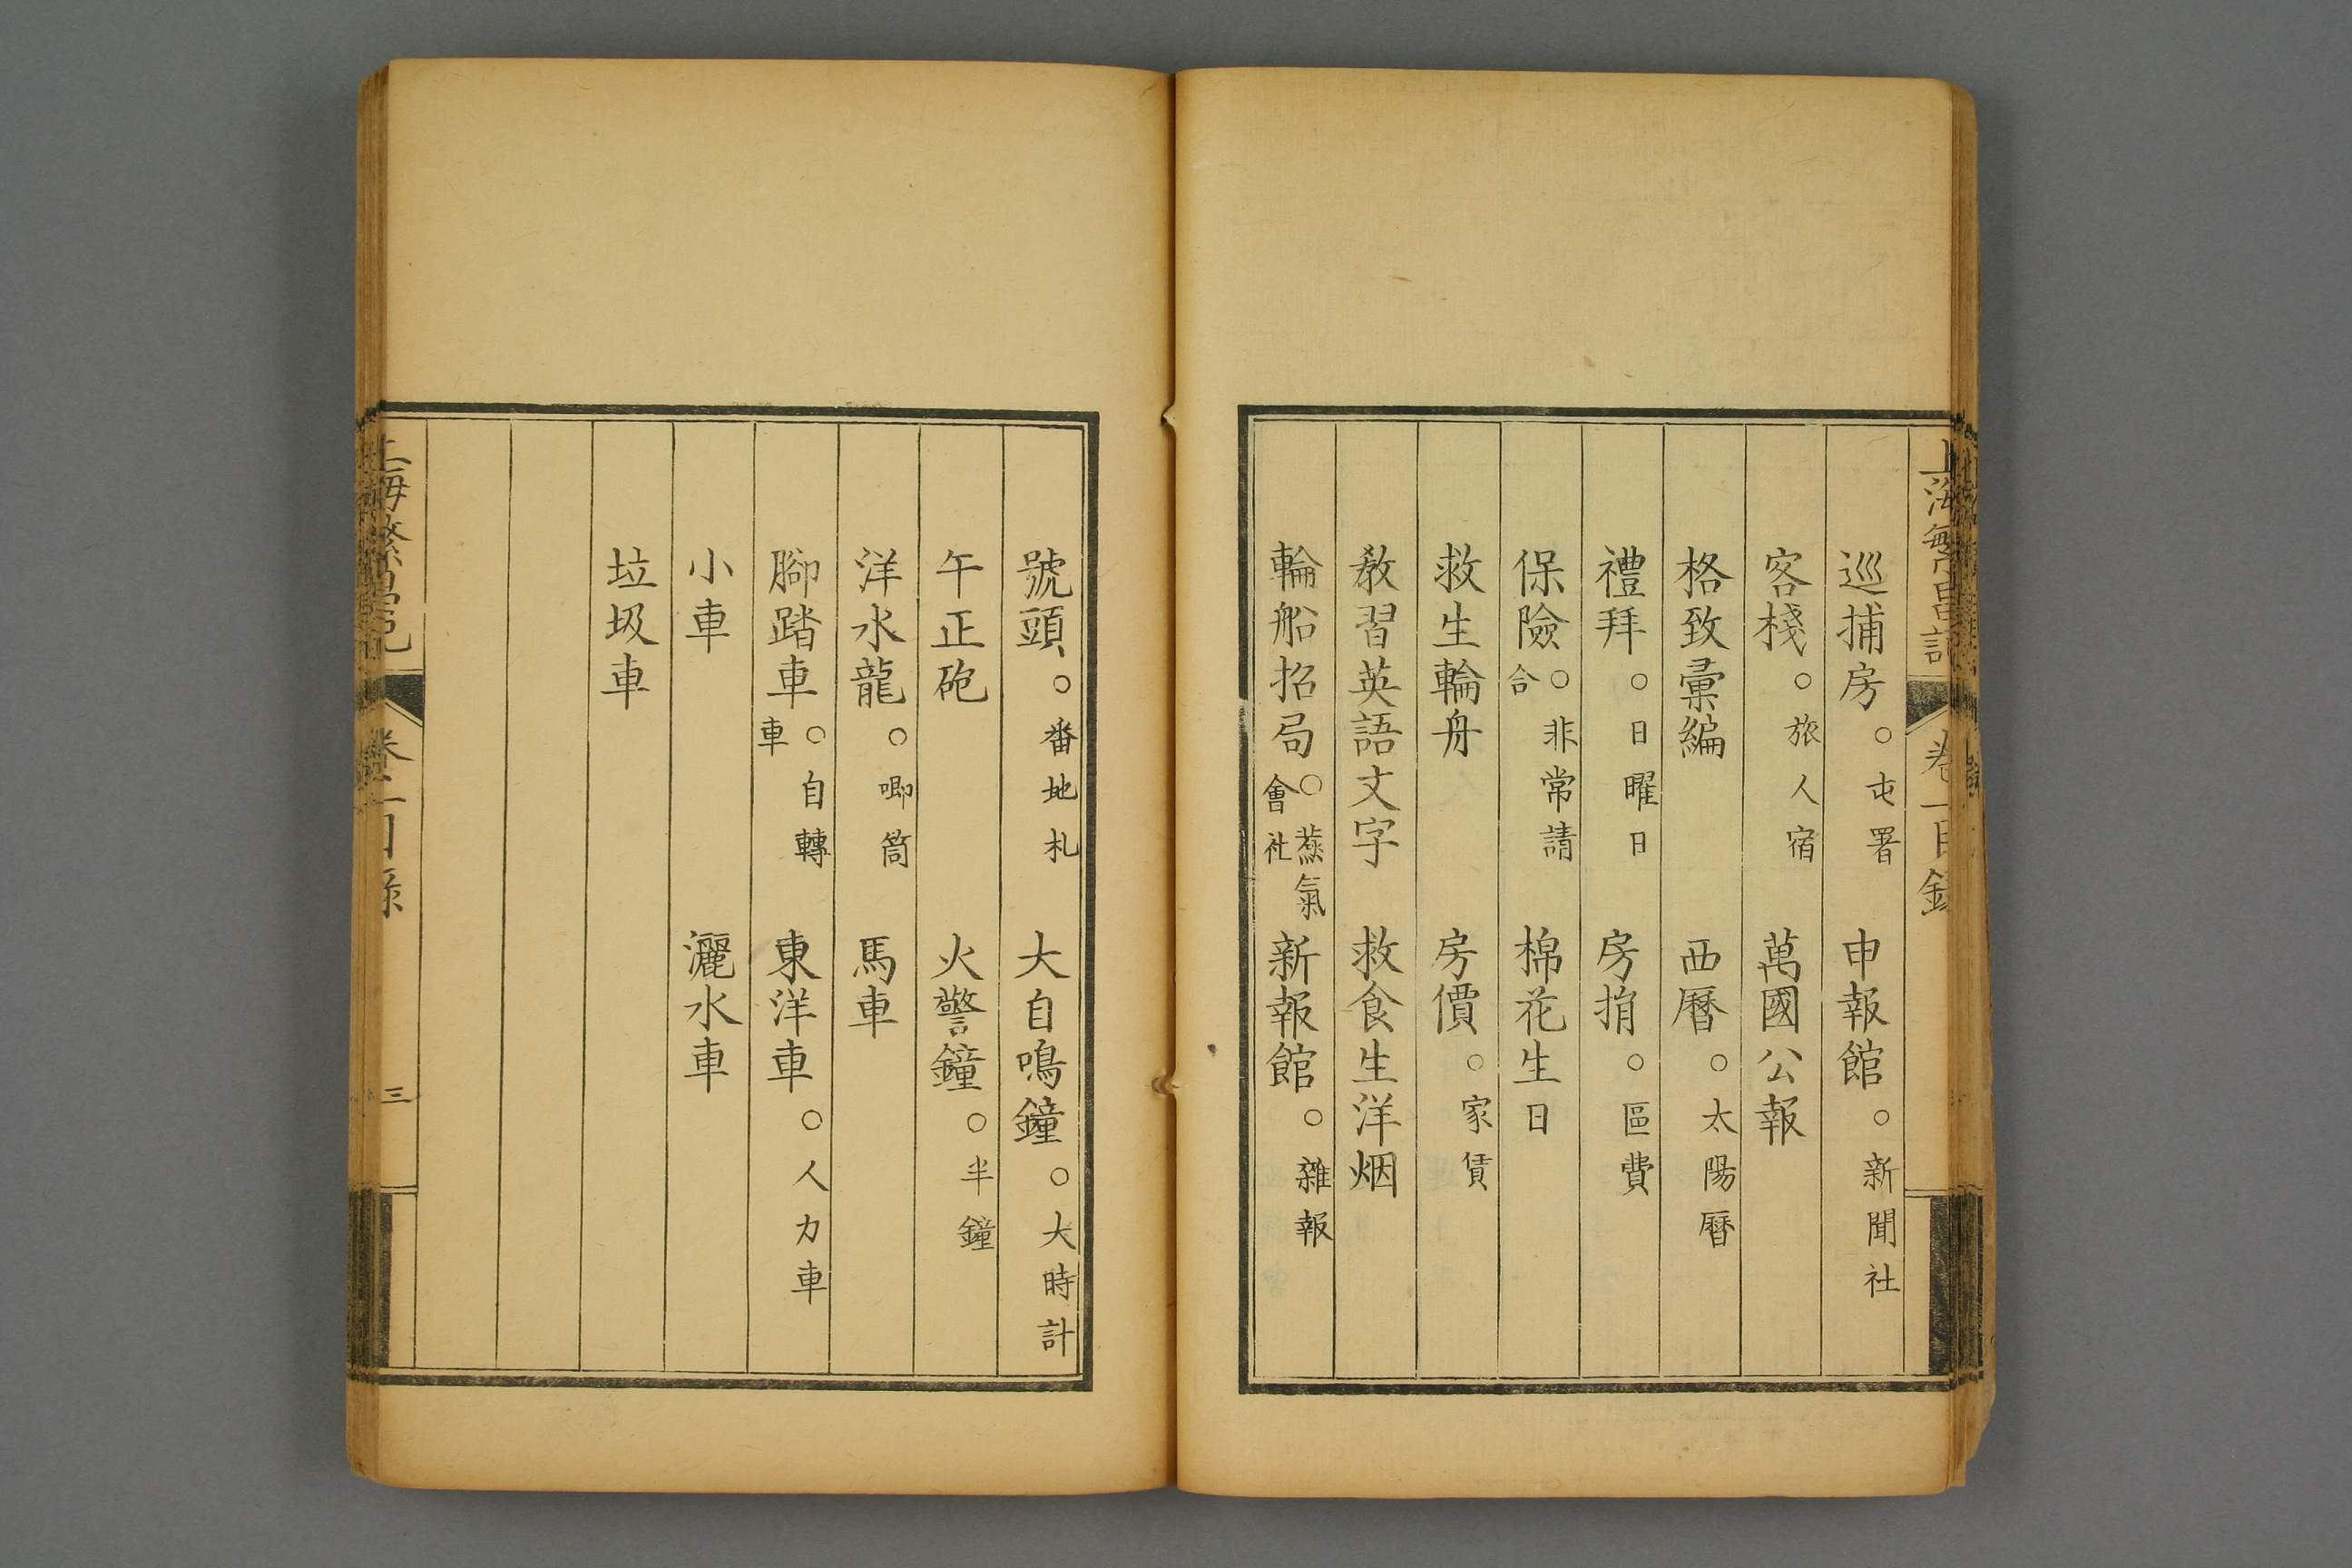 上海繁昌記 卷一目錄
巡捕房。○屯署 申報館。○新聞社
客棧。○旅人宿 萬國公報
格致彙編 西曆。○太陽曆
禮拜。○日曜日 房捐。○區費
保險。○非常請合 棉花生日
救生輪舟 房價。○家賃
教習英語文字 救食生洋烟
輪船招局。○蒸氣會社 新報館。○雜報
號頭。○番地札 大自鳴鐘。○大時計
午正砲 火警鐘。○半鐘
洋水龍。○喞筒 馬車
腳踏車。○自轉車 東洋車。○人力車
小車 灑水車
垃圾車
上海繁昌記 卷一目錄 三